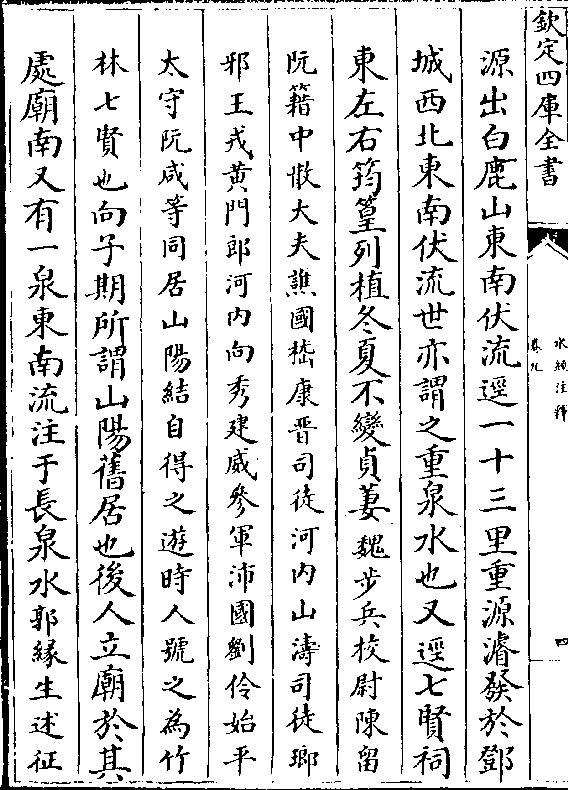 欽定四庫全書
水經注釋
卷九
四
源出白鹿山東南伏流逕一十三里重源濬發於鄧
城西北東南伏流世亦謂之重泉水也又逕七賢祠
東左右筠篁列植冬夏不變貞萋魏步兵校尉陳留
阮籍中散大夫譙國嵇康晋司徒河内山濤司徒瑯
邪王戎黄門郎河内向秀建威參軍沛國劉伶始平
太守阮咸等同居山陽結自得之遊時人號之為竹
林七賢也向子期所謂山陽舊居也後人立廟於其
處廟南又有一泉東南流注于長泉水郭緣生述征